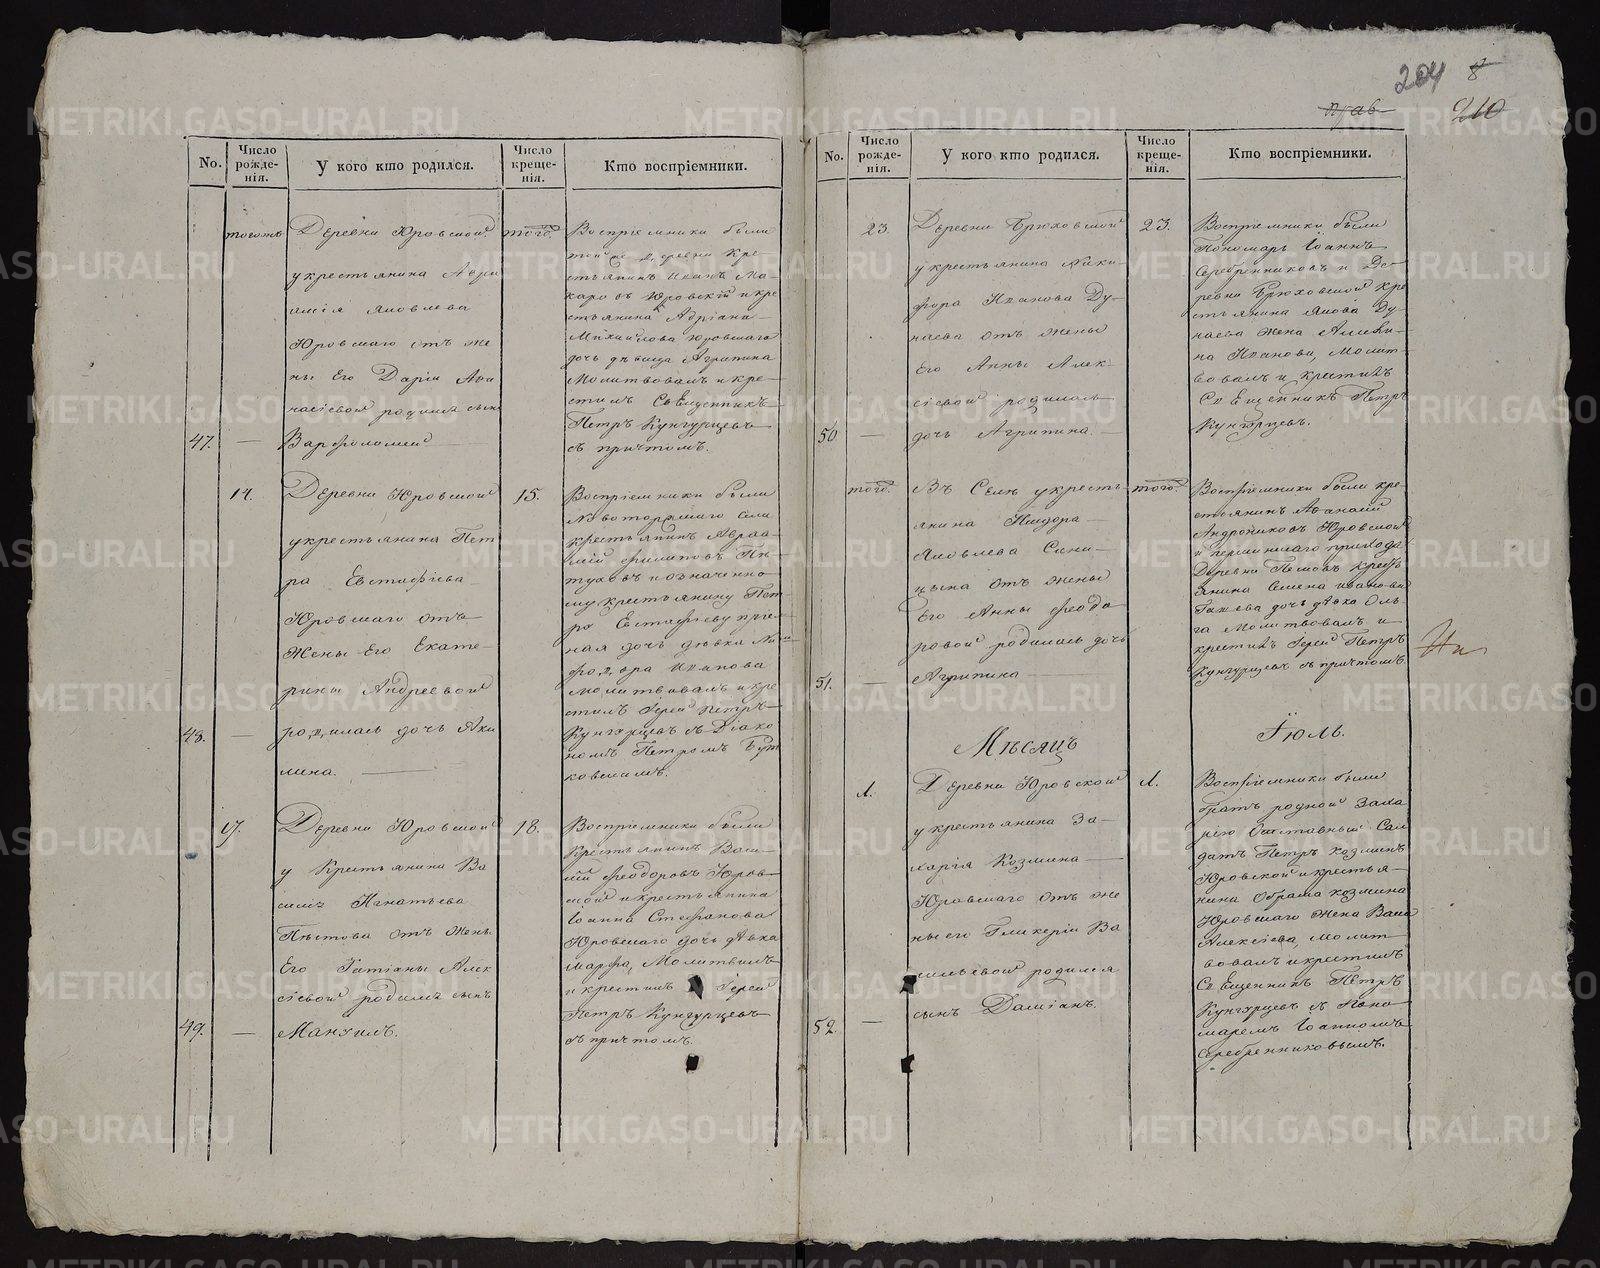 204 8
прав 210
No.
Число рожде-нія.
У кого кто родился.
Число креще-нія.
Кто воспріемники.
тогожъ
Деревни Юровской
у крестьянина Авра
амія Яковлева
Юровскаго отъ же
ны Его Даріи Афа
насіевой родился сынъ
47. — Варфоломей
того.
Воспріемники были
той же деревни Кре
стьянинъ Иванъ Ма-
каровъ Юровскій и кре
стьянина Адріана
Михайлова Юровскаго
дочь дѣвица Агрипина
Молитвовалъ и кре-
стилъ Священникъ
Петръ Кунгурцевъ
съ причтомъ.
14.
Деревни Юровской
у крестьянина Пет
ра Евстафіева
Юровскаго отъ
Жены Его Екате-
рины Андреевой
48. — родилась дочь Аки
лина.
15.
Воспріемники были
Новоторжскаго села
крестьянинъ Авраа-
мій Филиповъ Пѣ
туховъ и означенно
му крестьянину Пет
ру Евстафіеву
ная дочь дѣвка
Иванова
молитвовалъ и кре
стилъ Іерей Петръ
Кунгурцевъ съ Діако
номъ Петромъ Бут
ковскимъ.
17.
Деревни Юровской
у Крестьянина Ва
силія Игнатьева
Пѣстова отъ жены
Его Татіаны Алек
сіевой родился сынъ
49. — Мануилъ.
18.
Воспріемники были
Крестьянинъ Васи-
лій Феодоровъ Юров-
ской и крестьянина
Іоанна Стефанова
Юровскаго дочь дѣвка
марфа, Молитвилъ
и крестилъ Іерей
Петръ Кунгурцевъ
съ причтомъ.
No.
Число рожде-нія.
У кого кто родился.
Число креще-нія.
Кто воспріемники.
23.
Деревни Брюховской
у крестьянина Ники-
фора Иванова Ду-
наева отъ жены
Его Анны Алек-
сіевой родилась
50. — дочь Агрипина.
23.
Воспріемники были
Пономарь Іоаннъ
Серебренниковъ и Де-
ревни Брюховской кре
стьянина Якова Ду
наева жена
Иванова, Молит-
вовалъ и крестилъ
Священникъ Петръ
Кунгурцевъ.
того.
Въ Селѣ у кресть-
янина Исидора
Яковлева Сини-
цына отъ жены
Его Анны Феодо
ровой родилась дочь
51. — Агрипина
того.
Воспріемники были кре
стьянинъ Афанасій
Андрониковъ Юровской
и прихода
Деревни кресть
янина Семена Иванова
дочь дѣвка Оль-
га Молитвовалъ и
крестилъ Іерей Петръ
Кунгурцевъ съ причтомъ
Мѣсяцъ Іюль.
1.
Деревни Юровской
у крестьянина За-
харія Козмина
Юровскаго отъ же
ны его Гликеріи Ва
сильевой родился
52. — сынъ Даміанъ.
1.
Воспріемники были
братъ родной Заха
рію Отставный Сол
датъ Петръ козминъ
Юровской и крестья-
нина Абрама козмина
Юровскаго жена Васса
Алексіева, молит-
вовалъ и крестилъ
Священникъ Петръ
Кунгурцевъ съ Поно-
маремъ Іоанномъ
Серебренниковымъ.